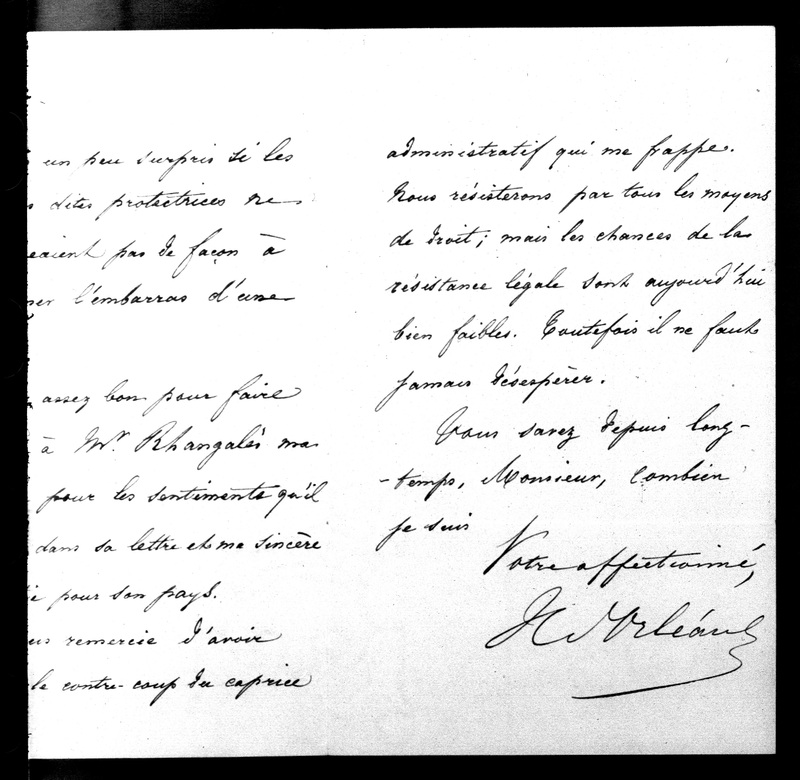 un peu surpris si les
dites protectrices ne
pas de façon à
l'embarras d'une
assez bon pour faire
à Mr. Rhangabés ma
pour les sentiments qu'il
dans sa lettre et ma sincère
pour son pays.
remercie d'avoir
le contre-coup du caprice
administratif qui me frappe.
Nous résisterons par tous les moyens
de droit; mais les chances de la
résistance légale sont aujourd'hui
bien faibles. Toutefois il ne faut
jamais désespérer.
Vous savez depuis long-
-temps, Monsieur, combien
je suis
Votre affectionné,
H d'Orléans